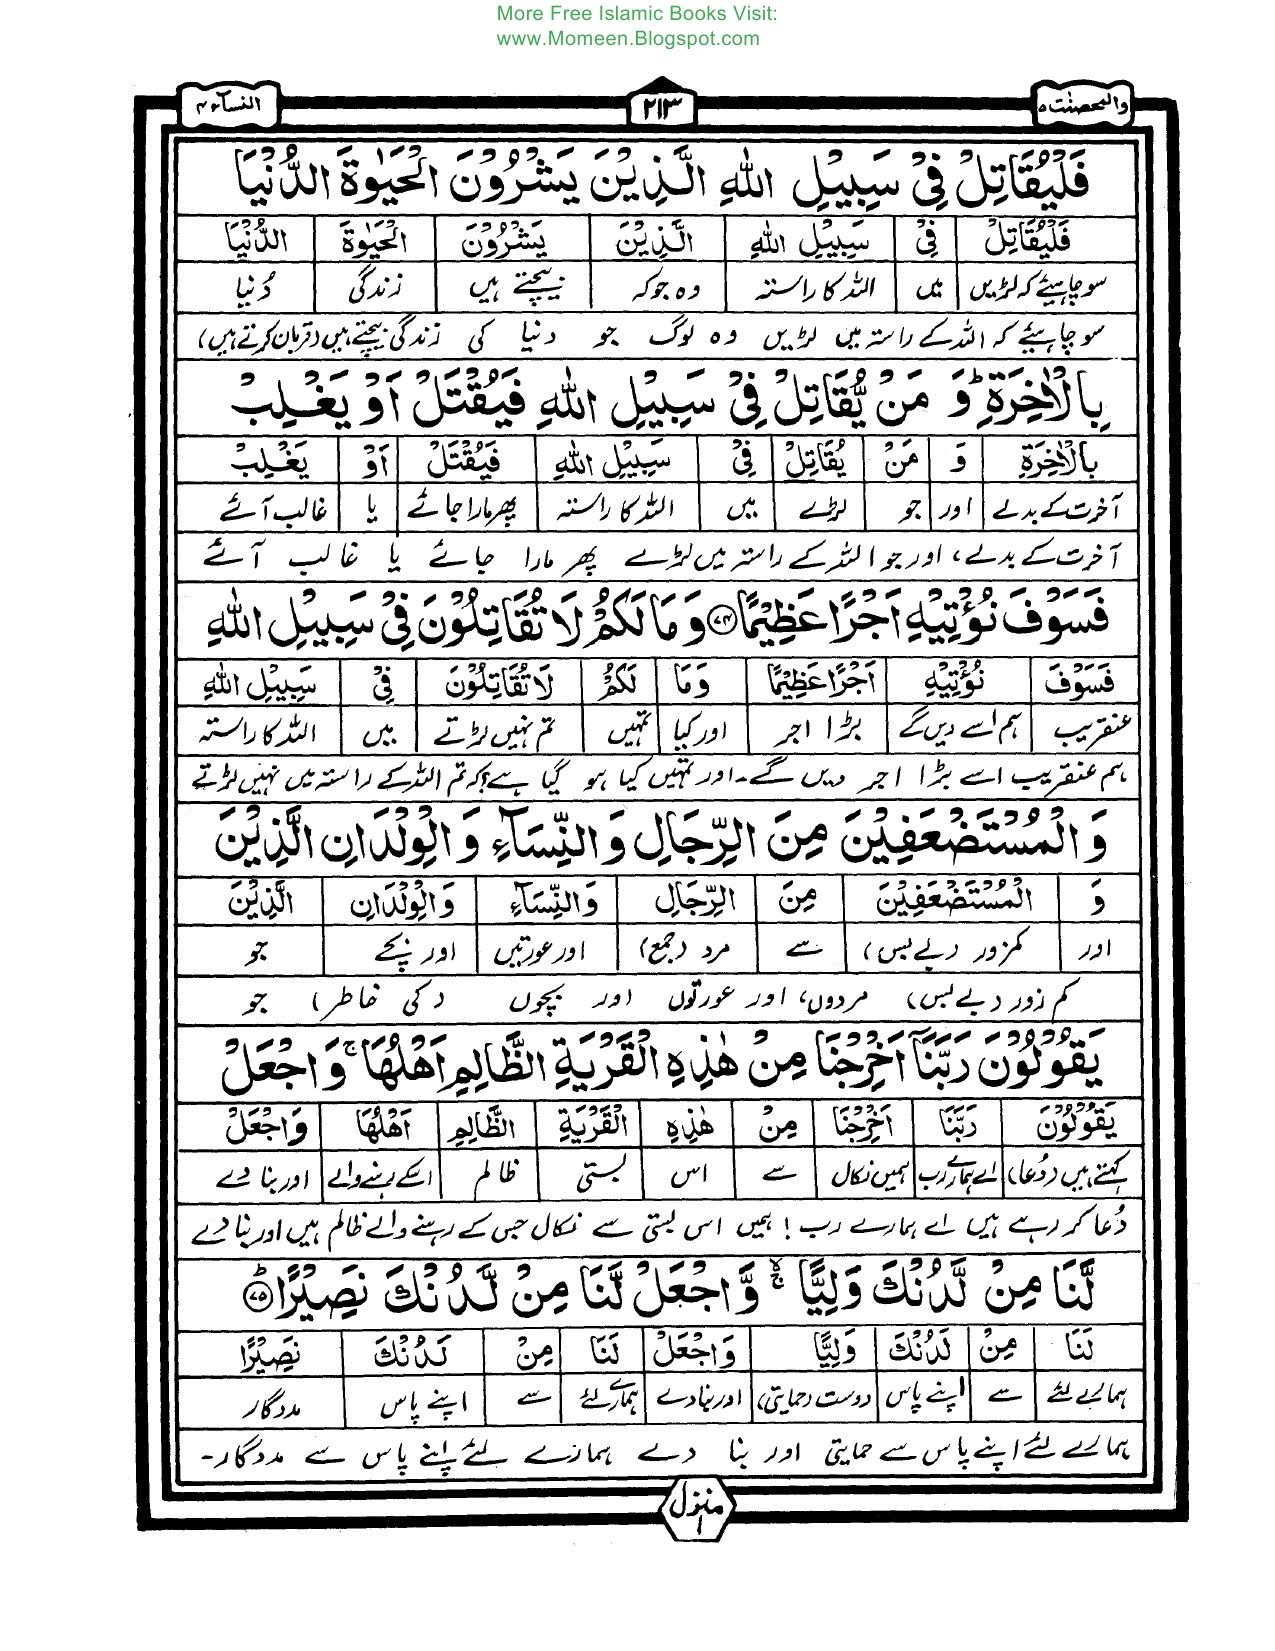 More Free Islamic Books Visit:
www.Momeen.Blogspot.com
والمحصنٰت ۵
۲۱۳
النسآء ۴
فَلْيُقَاتِلْ فِیْ سَبِيْلِ اللهِ الَّذِيْنَ يَشْرُوْنَ الْحَيٰوةَ الدُّنْيَا
فَلْيُقَاتِلْ فِیْ سَبِيْلِ اللهِ الَّذِيْنَ يَشْرُوْنَ الْحَيٰوةَ الدُّنْيَا
سو چاہیئے کہ لڑیں میں اللہ کا راستہ وہ جو کہ بیچتے ہیں زندگی دُنیا
سو چاہیئے کہ اللہ کے راستہ میں لڑیں وہ لوگ جو دنیا کی زندگی بیچتے ہیں (قربان کرتے ہیں)
بِالْاٰخِرَةِ ؕ وَ مَنْ يُّقَاتِلْ فِیْ سَبِيْلِ اللهِ فَيُقْتَلْ اَوْ يَغْلِبْ
بِالْاٰخِرَةِ وَ مَنْ يُقَاتِلْ فِیْ سَبِيْلِ اللهِ فَيُقْتَلْ اَوْ يَغْلِبْ
آخرت کے بدلے اور جو لڑے میں اللہ کا راستہ پھر مارا جائے یا غالب آئے
آخرت کے بدلے، اور جو اللہ کے راستہ میں لڑے پھر مارا جائے یا غالب آئے
فَسَوْفَ نُؤْتِيْهِ اَجْرًا عَظِيْمًا ۷۴ وَ مَا لَكُمْ لَا تُقَاتِلُوْنَ فِیْ سَبِيْلِ اللهِ
فَسَوْفَ نُؤْتِيْهِ اَجْرًا عَظِيْمًا وَمَا لَكُمْ لَا تُقَاتِلُوْنَ فِیْ سَبِيْلِ اللهِ
عنقریب ہم اسے دیں گے بڑا اجر اور کیا تمہیں تم نہیں لڑتے میں اللہ کا راستہ
ہم عنقریب اسے بڑا اجر دیں گے۔ اور تمہیں کیا ہو گیا ہے؟ کہ تم اللہ کے راستہ میں نہیں لڑتے
وَ الْمُسْتَضْعَفِيْنَ مِنَ الرِّجَالِ وَ النِّسَآءِ وَ الْوِلْدَانِ الَّذِيْنَ
وَ الْمُسْتَضْعَفِيْنَ مِنَ الرِّجَالِ وَالنِّسَآءِ وَالْوِلْدَانِ الَّذِيْنَ
اور کمزور (بے بس) سے مرد (جمع) اور عورتیں اور بچے جو
کم زور (بے بس) مردوں، اور عورتوں اور بچوں (کی خاطر) جو
يَقُوْلُوْنَ رَبَّنَآ اَخْرِجْنَا مِنْ هٰذِهِ الْقَرْيَةِ الظَّالِمِ اَهْلُهَا ۚ وَ اجْعَلْ
يَقُوْلُوْنَ رَبَّنَا اَخْرِجْنَا مِنْ هٰذِهِ الْقَرْيَةِ الظَّالِمِ اَهْلُهَا وَاجْعَلْ
کہتے ہیں (دُعا) اے ہمارے رب ہمیں نکال سے اس بستی ظالم اسکے رہنے والے اور بنا دے
دُعا کر رہے ہیں اے ہمارے رب! ہمیں اس بستی سے نکال جس کے رہنے والے ظالم ہیں اور بنا دے
لَّنَا مِنْ لَّدُنْكَ وَلِيًّا ۙۚ وَّ اجْعَلْ لَّنَا مِنْ لَّدُنْكَ نَصِيْرًا ؕ ۷۵
لَنَا مِنْ لَدُنْكَ وَلِيًّا وَاجْعَلْ لَنَا مِنْ لَدُنْكَ نَصِيْرًا
ہمارے لئے سے اپنے پاس دوست (حمایتی) اور بنا دے ہمارے لئے سے اپنے پاس مددگار
ہمارے لئے اپنے پاس سے حمایتی اور بنا دے ہمارے لئے اپنے پاس سے مددگار۔
منزل ۱